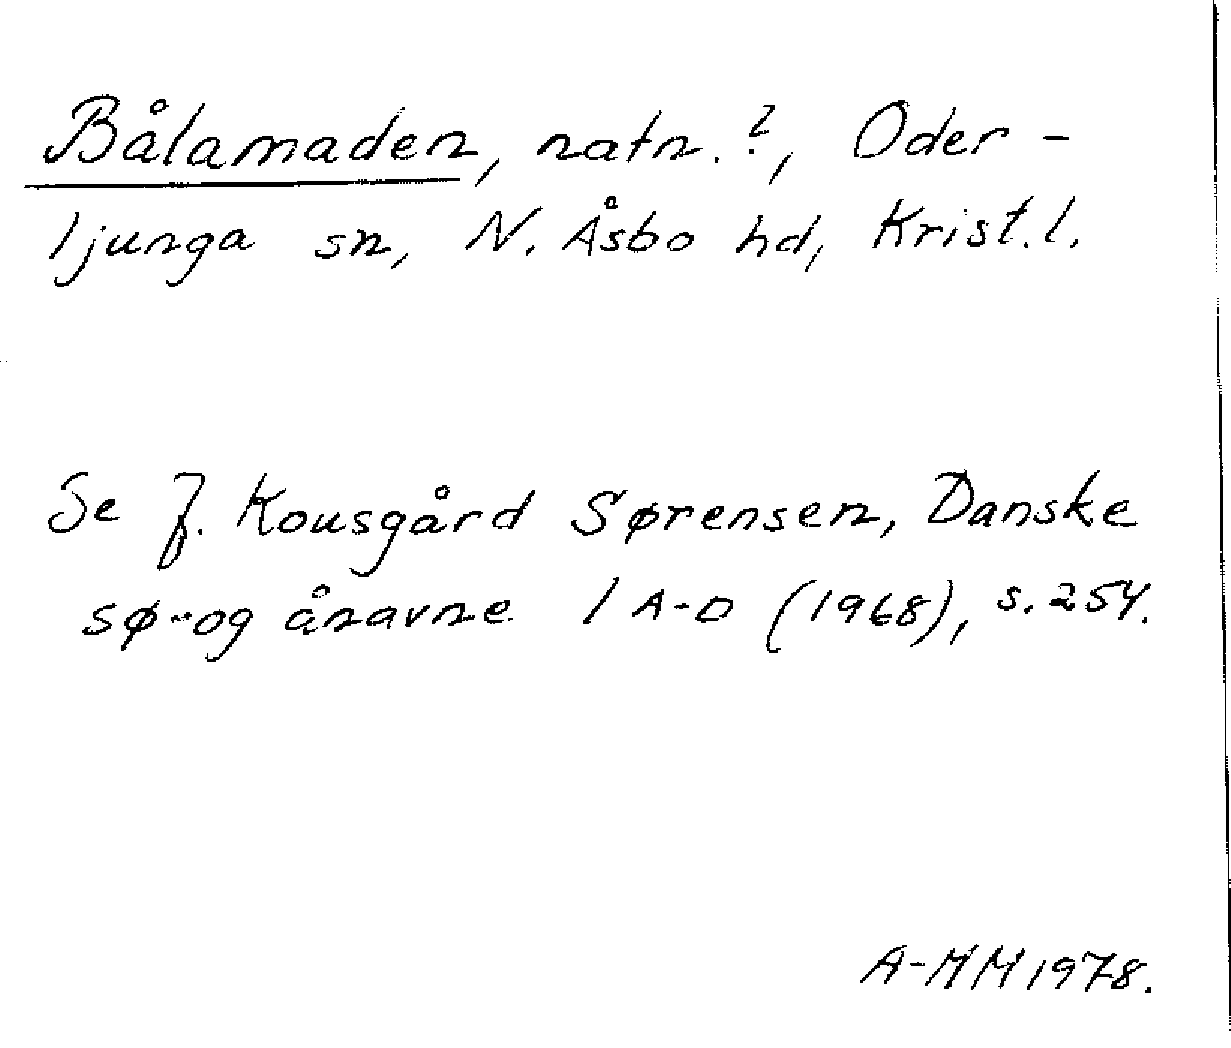 Bålamaden, natn.?, Oder-
ljunga sn, N. Åsbo hd, Krist.l.
Se J. Kousgård Sørensen, Danske
sø- og ånavne 1 A-D (1968), s. 254.
A-MM 1978.